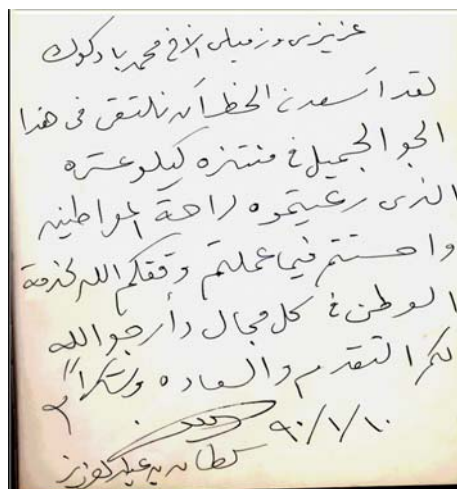 عزيزى وزميلى الاخ محمد بادكوك
لقد أسعدنى الحظ أن نلتقى فى هذا
الجو الجميل فى منتزه كيلو عشره
الذى رعيتموه لراحة المواطنين
واحسنتم فيما عملتم وفقكم الله لخدمة
الوطن فى كل مجال وأرجو الله
لكم التقدم والسعاده وشكراً
٩٠/١/١٠
سلطان بن عبد العزيز